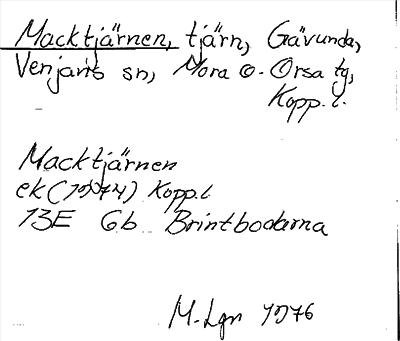 Macktjärnen, tjärn, Gävunda,
Venjans sn, Mora o. Orsa tg,
Kopp. l.
Macktjärnen
ek (1974) Kopp. l
13E 6b Brintbodarna
M. Lgn 1976